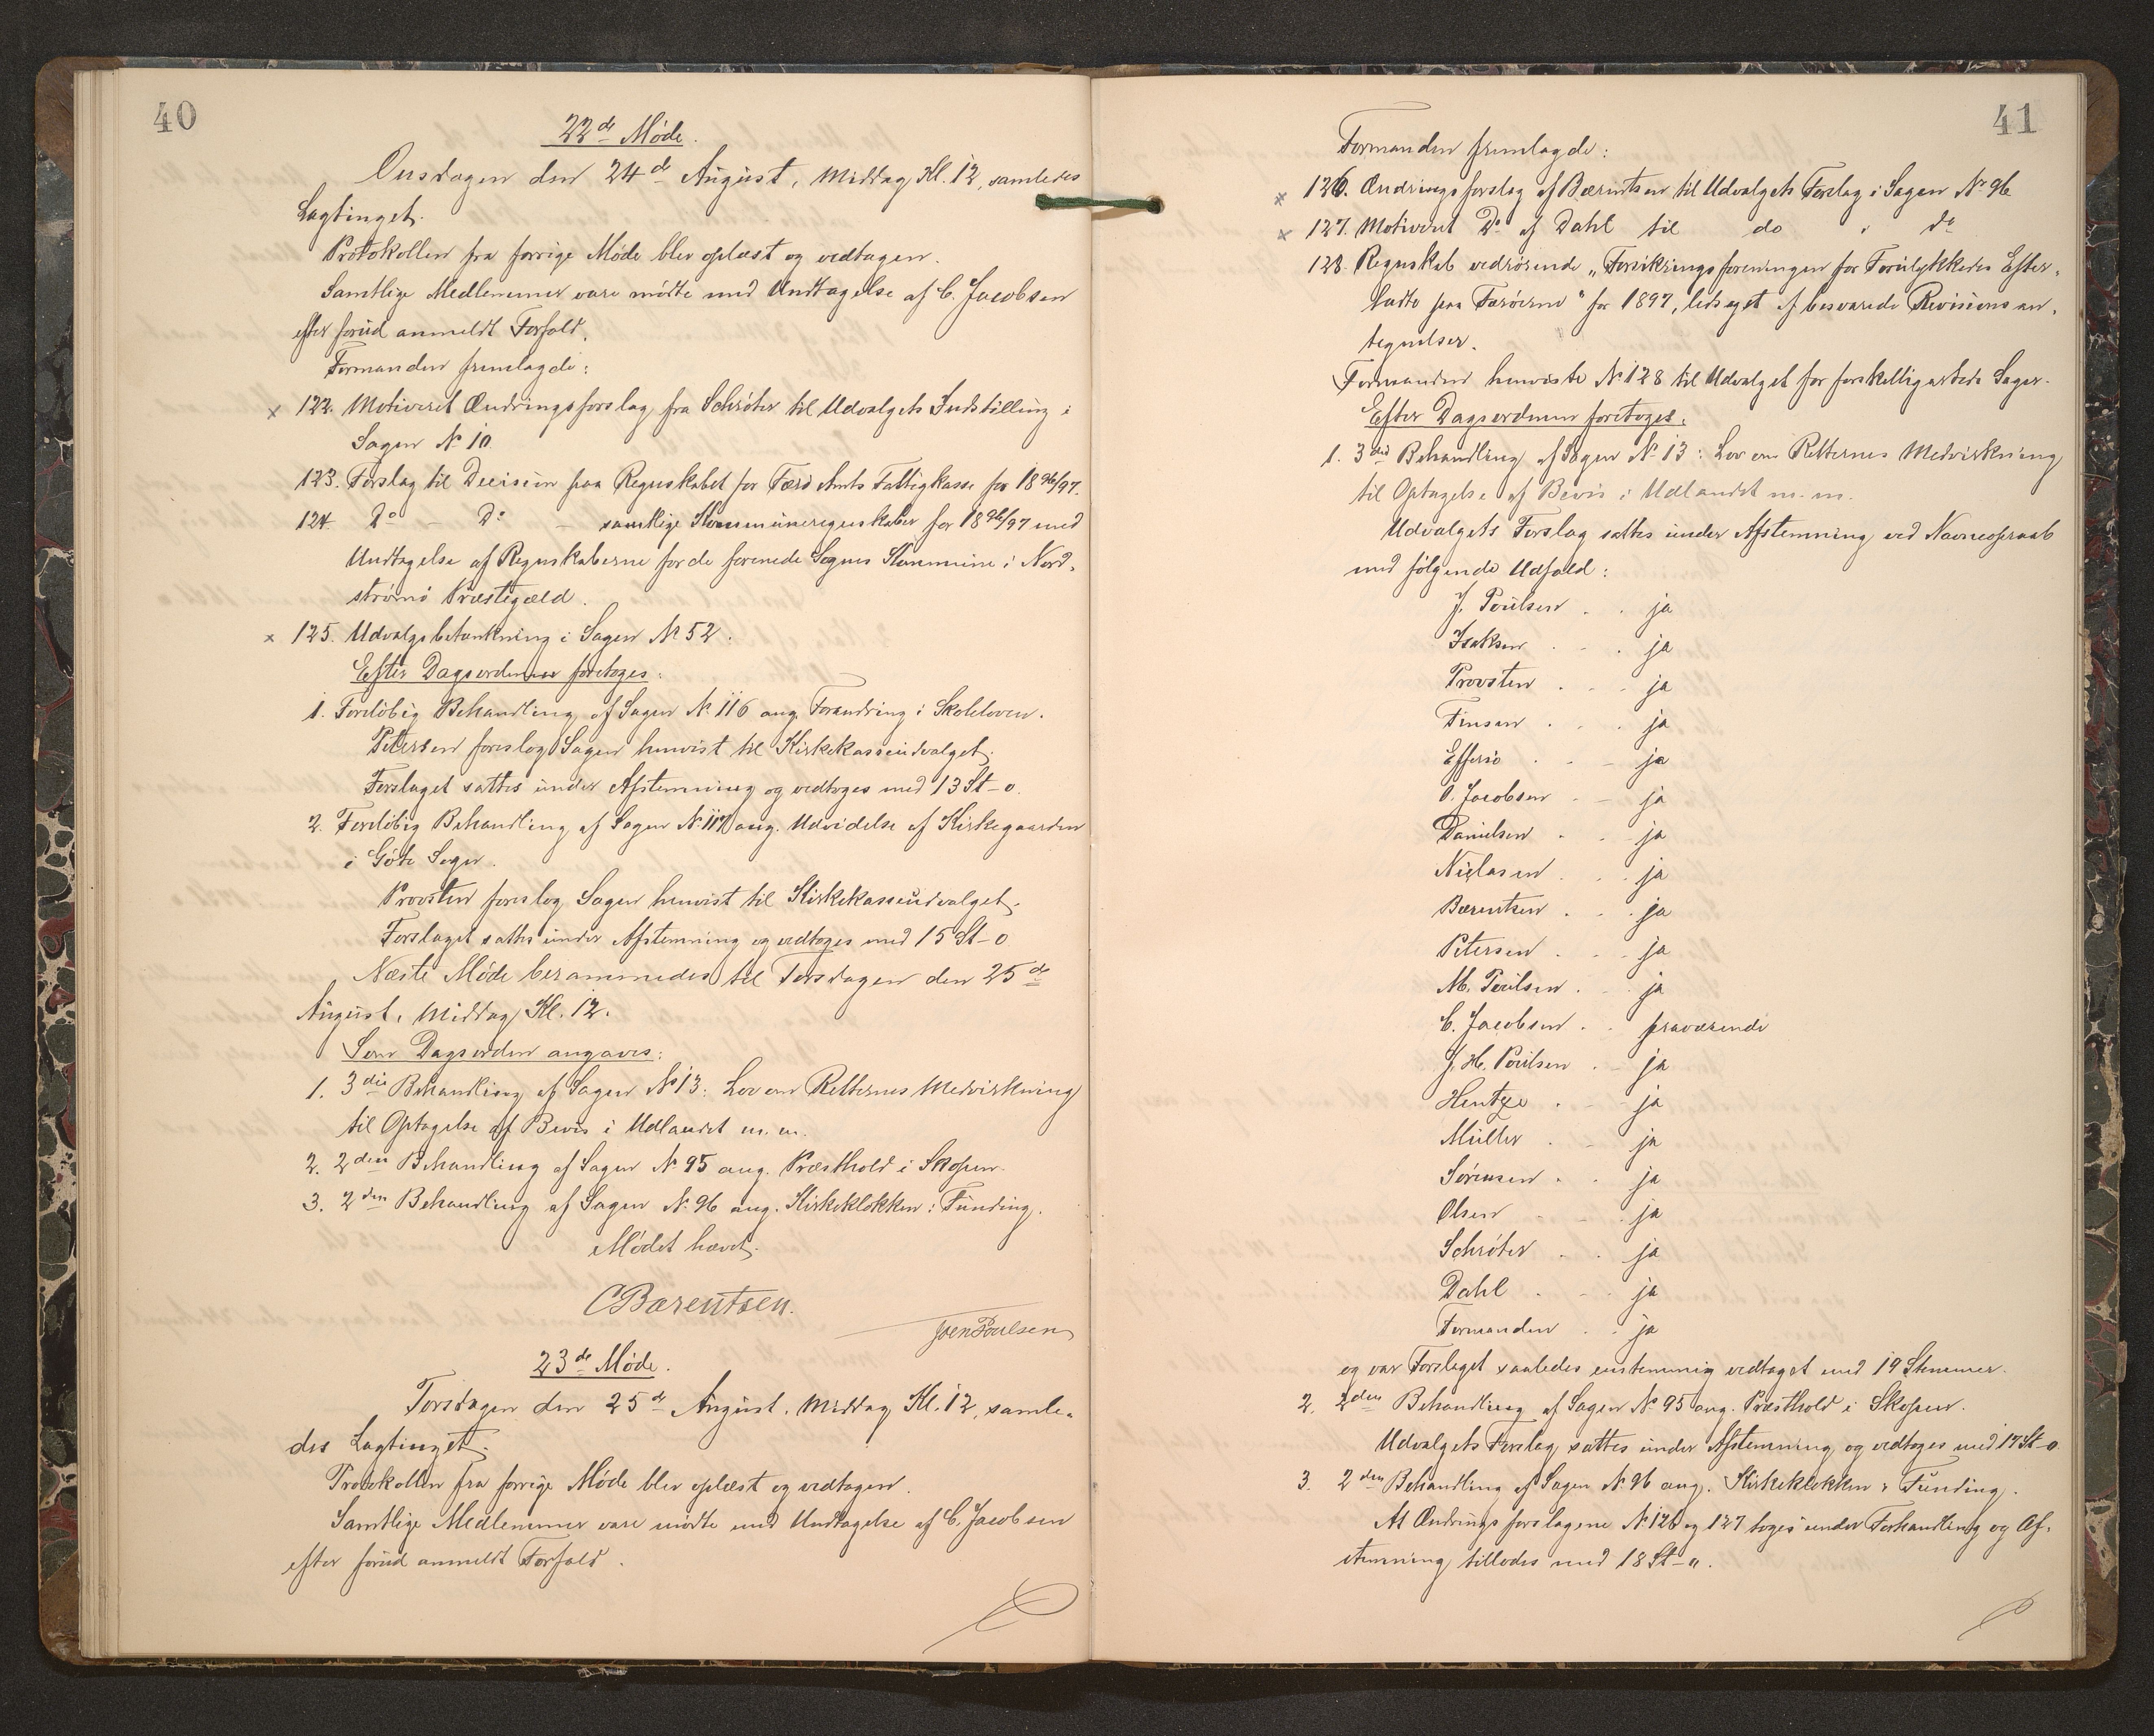 40
22de Møde.
Onsdagen den 24de August, Middag Kl. 12, samledes
Lagtinget.
Protokollen fra forrige Møde blev oplæst og vedtagen.
Samtlige Medlemmer vare mødte med Undtagelse af C. Jacobsen
efter forud anmeldt Forfald.
Formanden fremlagde:
x 122. Motiveret Ændringsforslag fra Schrøter til Udvalgets Indstilling i
Sagen No 10.
123. Forslag til Decision paa Regnskabet for Færø Amts Fattigkasse for 1896/97.
124. Do - Do - samtlige Kommuneregnskaber for 1896/97 med
Undtagelse af Regnskaberne for de forenede Sognes Kommune i Nord-
strømø Præstegæld.
x 125. Udvalgsbetænkning i Sagen No 52.
Efter Dagsordenen foretoges:
1. Foreløbig Behandling af Sagen No 116 ang. Forandring i Skoleloven.
Petersen foreslog Sagen henvist til Kirkekasseudvalget.
Forslaget sattes under Afstemning og vedtoges med 13 St - 0.
2. Foreløbig Behandling af Sagen No 117 ang. Udvidelse af Kirkegaarden
i Gøte Sogn.
Provsten foreslog Sagen henvist til Kirkekasseudvalget.
Forslaget sattes under Afstemning og vedtoges med 15 St - 0.
Næste Møde berammedes til Torsdagen den 25de
August, Middag Kl. 12.
Som Dagsorden angaves:
1. 3die Behandling af Sagen No 13: Lov om Retternes Medvirkning
til Optagelse af Bevis i Udlandet m. m.
2. 2den Behandling af Sagen No 95 ang. Præsthold i Skopen.
3. 2den Behandling af Sagen No 96 ang. Kirkeklokken i Funding.
Mødet hævet.
C Bærentsen.
Joen Poulsen
23de Møde.
Torsdagen den 25de August, Middag Kl. 12, samle-
des Lagtinget.
Protokollen fra forrige Møde blev oplæst og vedtagen.
Samtlige Medlemmer vare mødte med Undtagelse af C. Jacobsen
efter forud anmeldt Forfald.
41
Formanden fremlagde:
x 126. Ændringsforslag af Bærentsen til Udvalgets Forslag i Sagen No 96
x 127. Motiveret Do af Dahl til do " do
128. Regnskab vedrørende "Forsikringsforeningen for Forulykkedes Efter-
ladte paa Færøerne" for 1897, ledsaget af besvarede Revisionsan-
tegnelser.
Formanden henviste No 128 til Udvalget for forskelligartede Sager.
Efter Dagsordenen foretoges:
1. 3die Behandling af Sagen No 13: Lov om Retternes Medvirkning
til Optagelse af Bevis i Udlandet m. m.
Udvalgets Forslag sattes under Afstemning ved Navneopraab
med følgende Udfald:
J. Poulsen . . ja
Isaksen . . . ja
Provsten . . . ja
Finsen . . . ja
Effersø . . . ja
O. Jacobsen . . ja
Danielsen . . . ja
Niclasen . . . ja
Bærentsen . . . ja
Petersen . . . ja
M. Poulsen . . . ja
C. Jacobsen . . fraværende
J. H. Poulsen . . ja
Hentze . . . ja
Müller . . . ja
Sørensen . . ja
Olsen . . . ja
Schrøter . . ja
Dahl . . . ja
Formanden . . ja
og var Forslaget saaledes enstemmig vedtaget med 19 Stemmer.
2. 2den Behandling af Sagen No 95 ang. Præsthold i Skopen.
Udvalgets Forslag sattes under Afstemning og vedtoges med 17 St - 0
3. 2den Behandling af Sagen No 96 ang. Kirkeklokken i Funding.
At Ændringsforslagene No 126 og 127 toges under Forhandling og Af-
stemning tillodes med 18 St - 0.